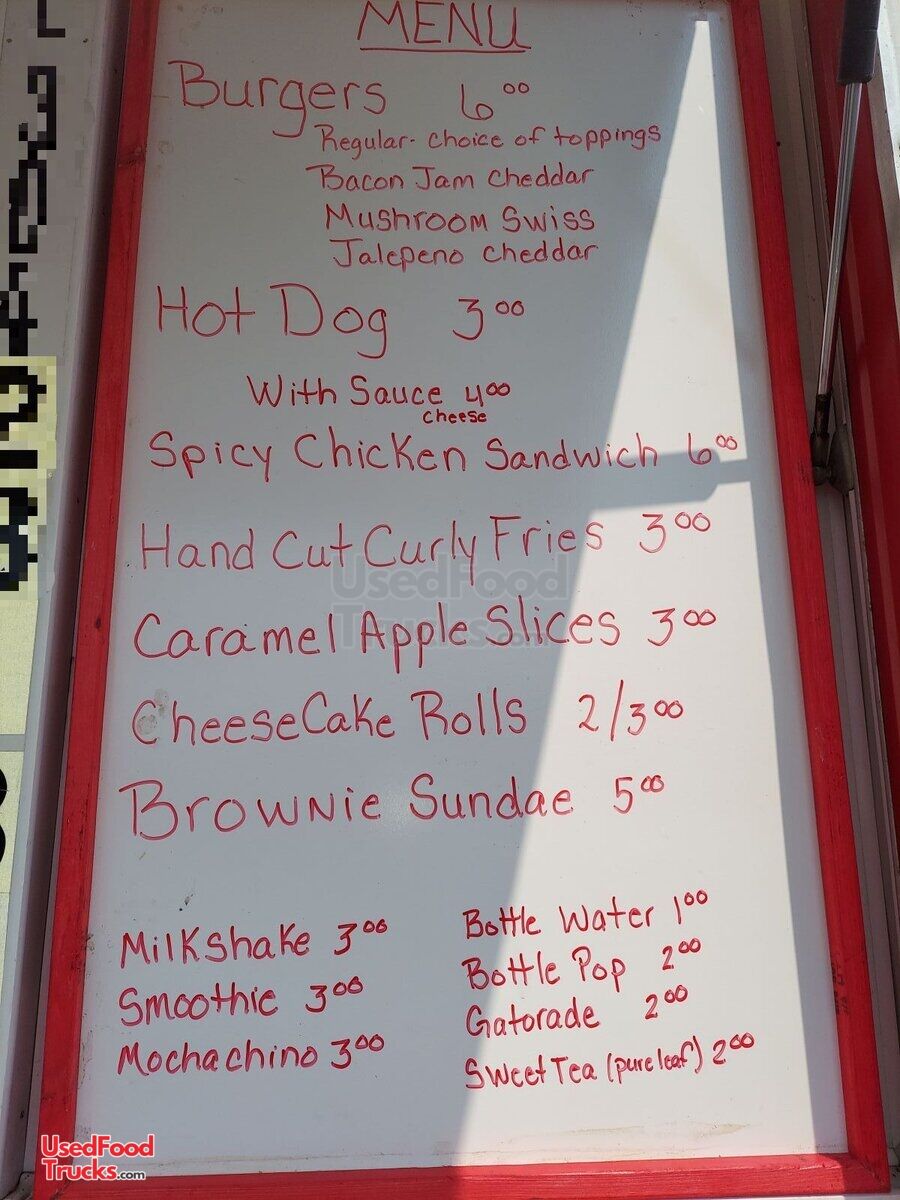 MENU
Burgers 6.00
Regular- choice of toppings
Bacon Jam Cheddar
Mushroom Swiss
Jalepeno Cheddar
Hot Dog 3.00
With Sauce 4.00
cheese
Spicy Chicken Sandwich 6.00
Hand Cut Curly Fries 3.00
Caramel Apple Slices 3.00
CheeseCake Rolls 2/3.00
Brownie Sundae 5.00
Milkshake 3.00
Smoothie 3.00
Mochachino 3.00
Bottle Water 1.00
Bottle Pop 2.00
Gatorade 2.00
Sweet Tea (pure leaf) 2.00
UsedFood
Trucks.com
UsedFood
Trucks.com